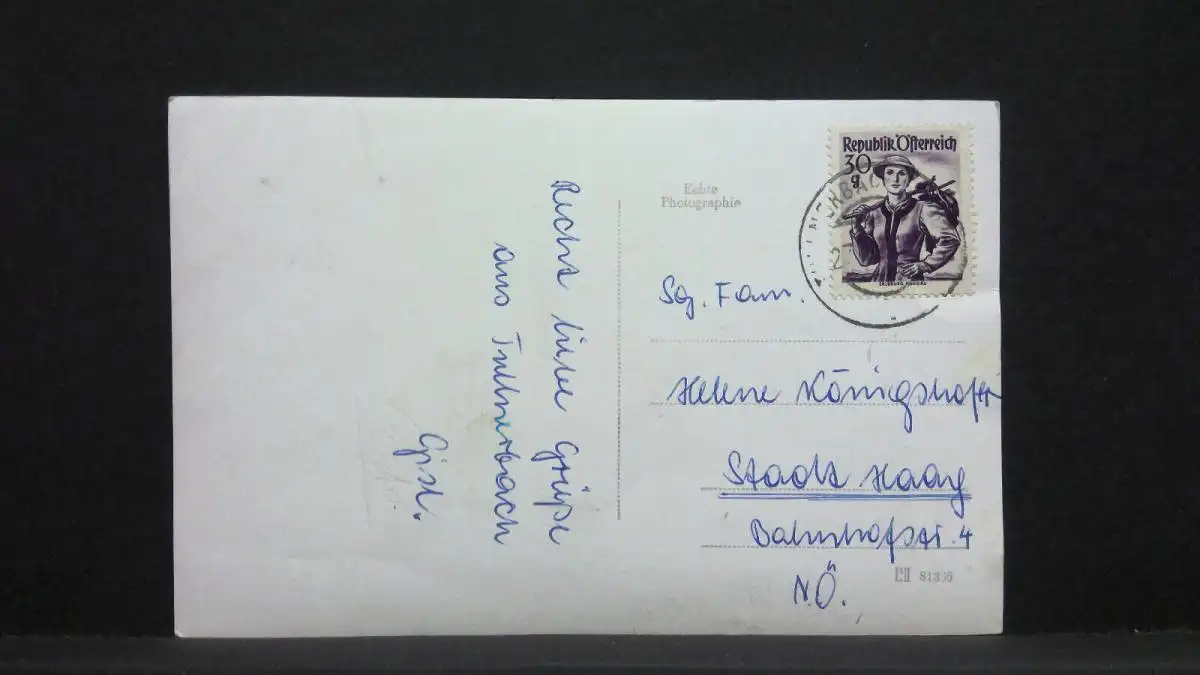 Recht liebe Grüße
aus Tullnerbach
Gisl.
Echte
Photographie
Republik Österreich
30
g
Sg. Fam.
Helene Königshofer
Stadt Haag
Bahnhofstr. 4
N.Ö.
81336